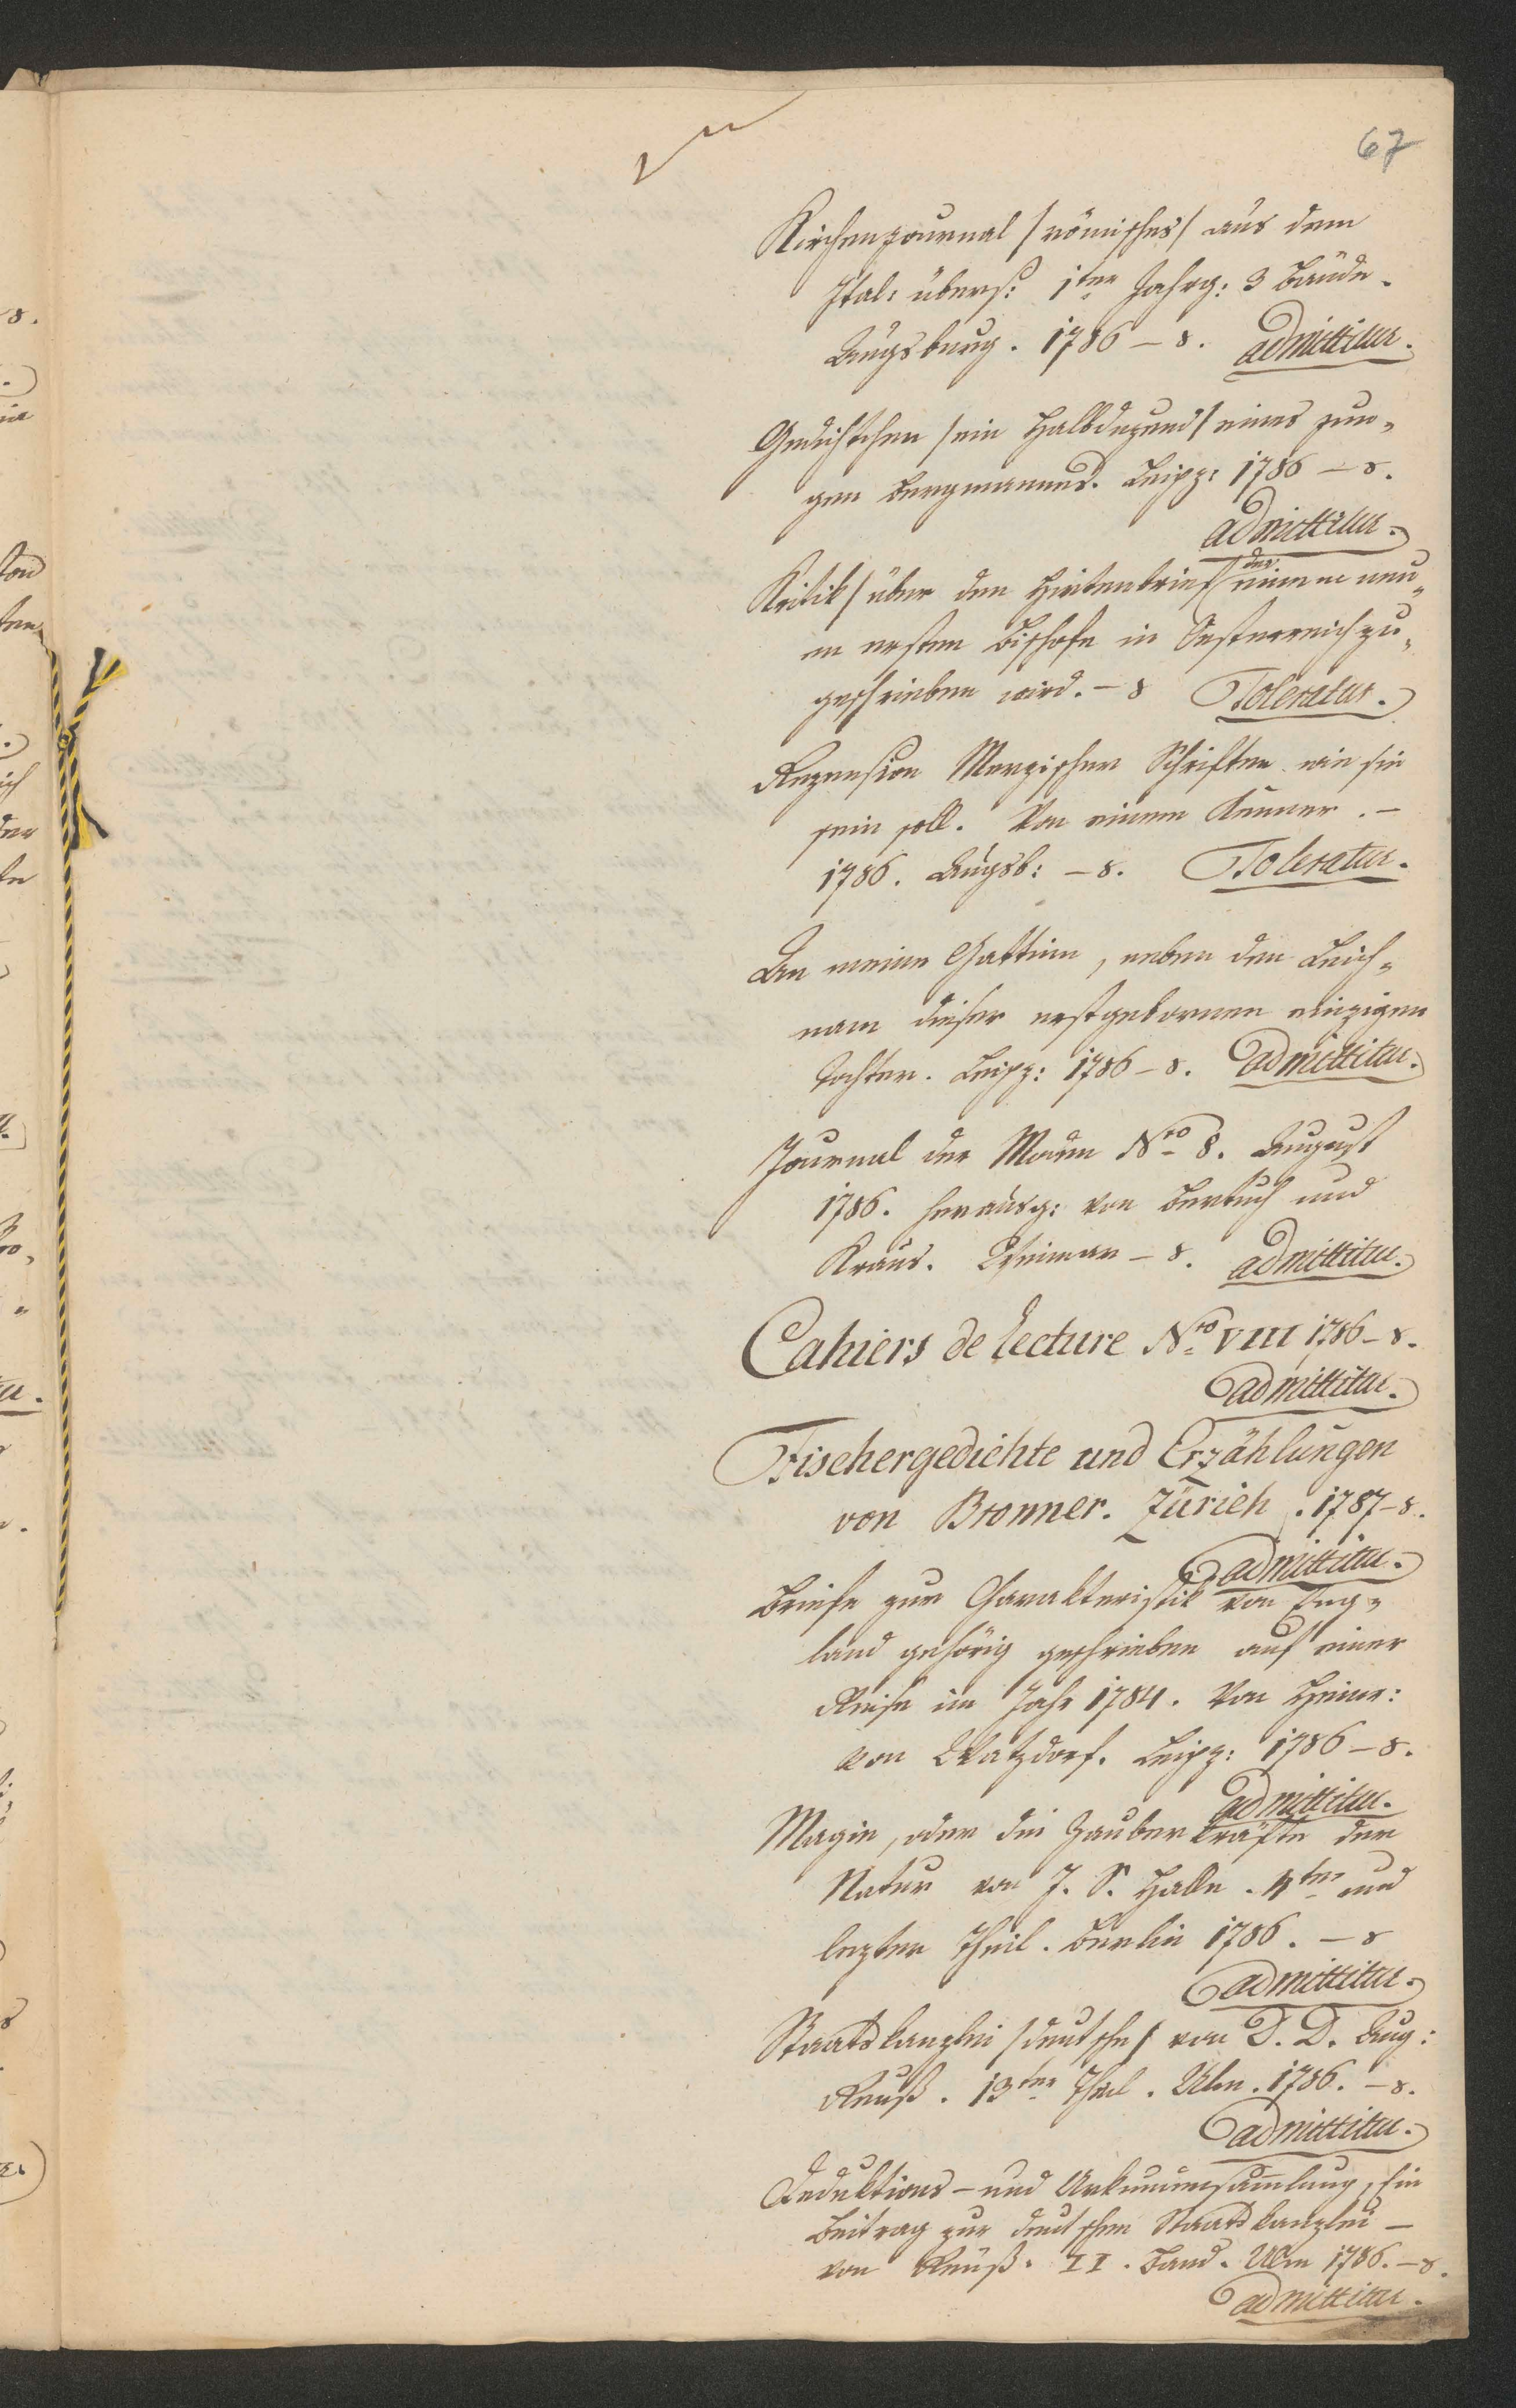 67
Kirchenjournal /römisches/ aus dem
Ital: übers: 1ter Jahrg: 3 Bände.
Augsburg. 1786 – 8. admittitur.
Gedichtchen /ein Halbduzend/ eines jun„
gen Bergmannes. Leipz: 1786 – 8.
admittitur.
Kritik /über den Hirtenbrief/ der einem neu„
en ersten Bischofe in Oesterreich zu„
geschrieben wird. – 8 Toleratur.
Rezension Merzischer Schriften wie sie
sein soll. Von einem Kenner. –
1786. Augsb: – 8. Toleratur.
An meine Gattinn, neben den Leich„
nam dieser erstgebornen einzigen
Tochter. Leipz: 1786 – 8. admittitur.
Journal der Moden Nro 8. August
1786. herausg: von Bertuch und
Kraus. Weimar – 8. admittitur.
Cahiers de lecture Nro VIII 1786 – 8.
admittitur.
Fischergedichte und Erzählungen
von Bronner. Zürich. 1787 – 8.
admittitur.
Briefe zur Charakteristik von Eng„
land gehörig geschrieben auf einer
Reise im Jahr 1784. Von Heinr:
von Watzdorf. Leipz: 1786 – 8.
admittitur.
Magie, oder die Zauberkräfte der
Natur von J. S. Halle. 4ter und
lezter Theil. Berlin 1786. – 8
admittitur.
Staatskanzlei /deutsche/ von D. D. Aug:
Reuß. 13ter Theil. Ulm. 1786. – 8.
admittitur.
Deduktions – und Urkundensammlung, Ein
Beitrag zur deutschen Staatskanzlei –
von Reuß. II. Band. Ulm 1786. – 8.
admittitur.